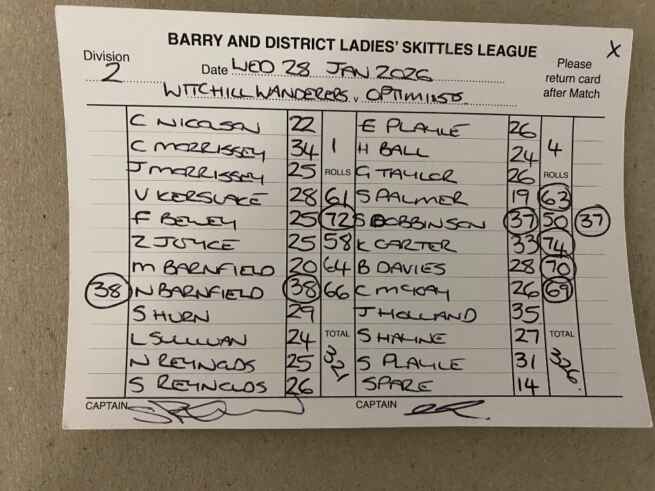 BARRY AND DISTRICT LADIES' SKITTLES LEAGUE X
Division 2 Date WED 28 JAN 2026 Please return card after Match
WITCHILL WANDERERS v OPTIMISTS
C NICOLSON 22 E PLAYLE 26
C MORRISSEY 34 1 H BALL 24 4
J MORRISSEY 25 ROLLS G TAYLOR 26 ROLLS
V KERSLAKE 28 61 S PALMER 19 63
F BEWEY 25 72 S DOBBINSON 37 50 37
Z JOYCE 25 58 K CARTER 33 74
M BARNFIELD 20 64 B DAVIES 28 70
38 N BARNFIELD 38 66 C MCKAY 26 69
S HURN 29 J HOLLAND 35
L SULLIVAN 24 TOTAL S HAINE 27 TOTAL
N REYNOLDS 25 321 S PLAYLE 31 326.
S REYNOLDS 26 SPARE 14
CAPTAIN CAPTAIN